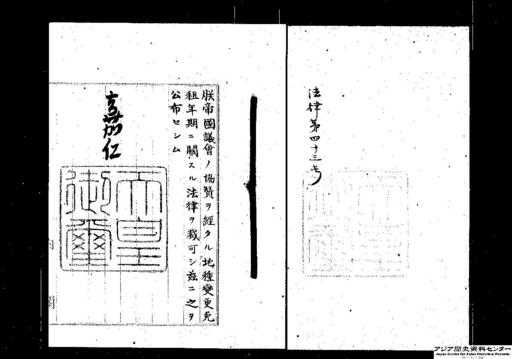 法律第四十三号
朕帝國議會ノ協賛ヲ經タル地種變更免
租年期ニ關スル法律ヲ裁可シ茲ニ之ヲ
公布セシム
嘉仁
天皇
御璽
内閣
アジア歴史資料センター
Japan Center for Asian Historical Records